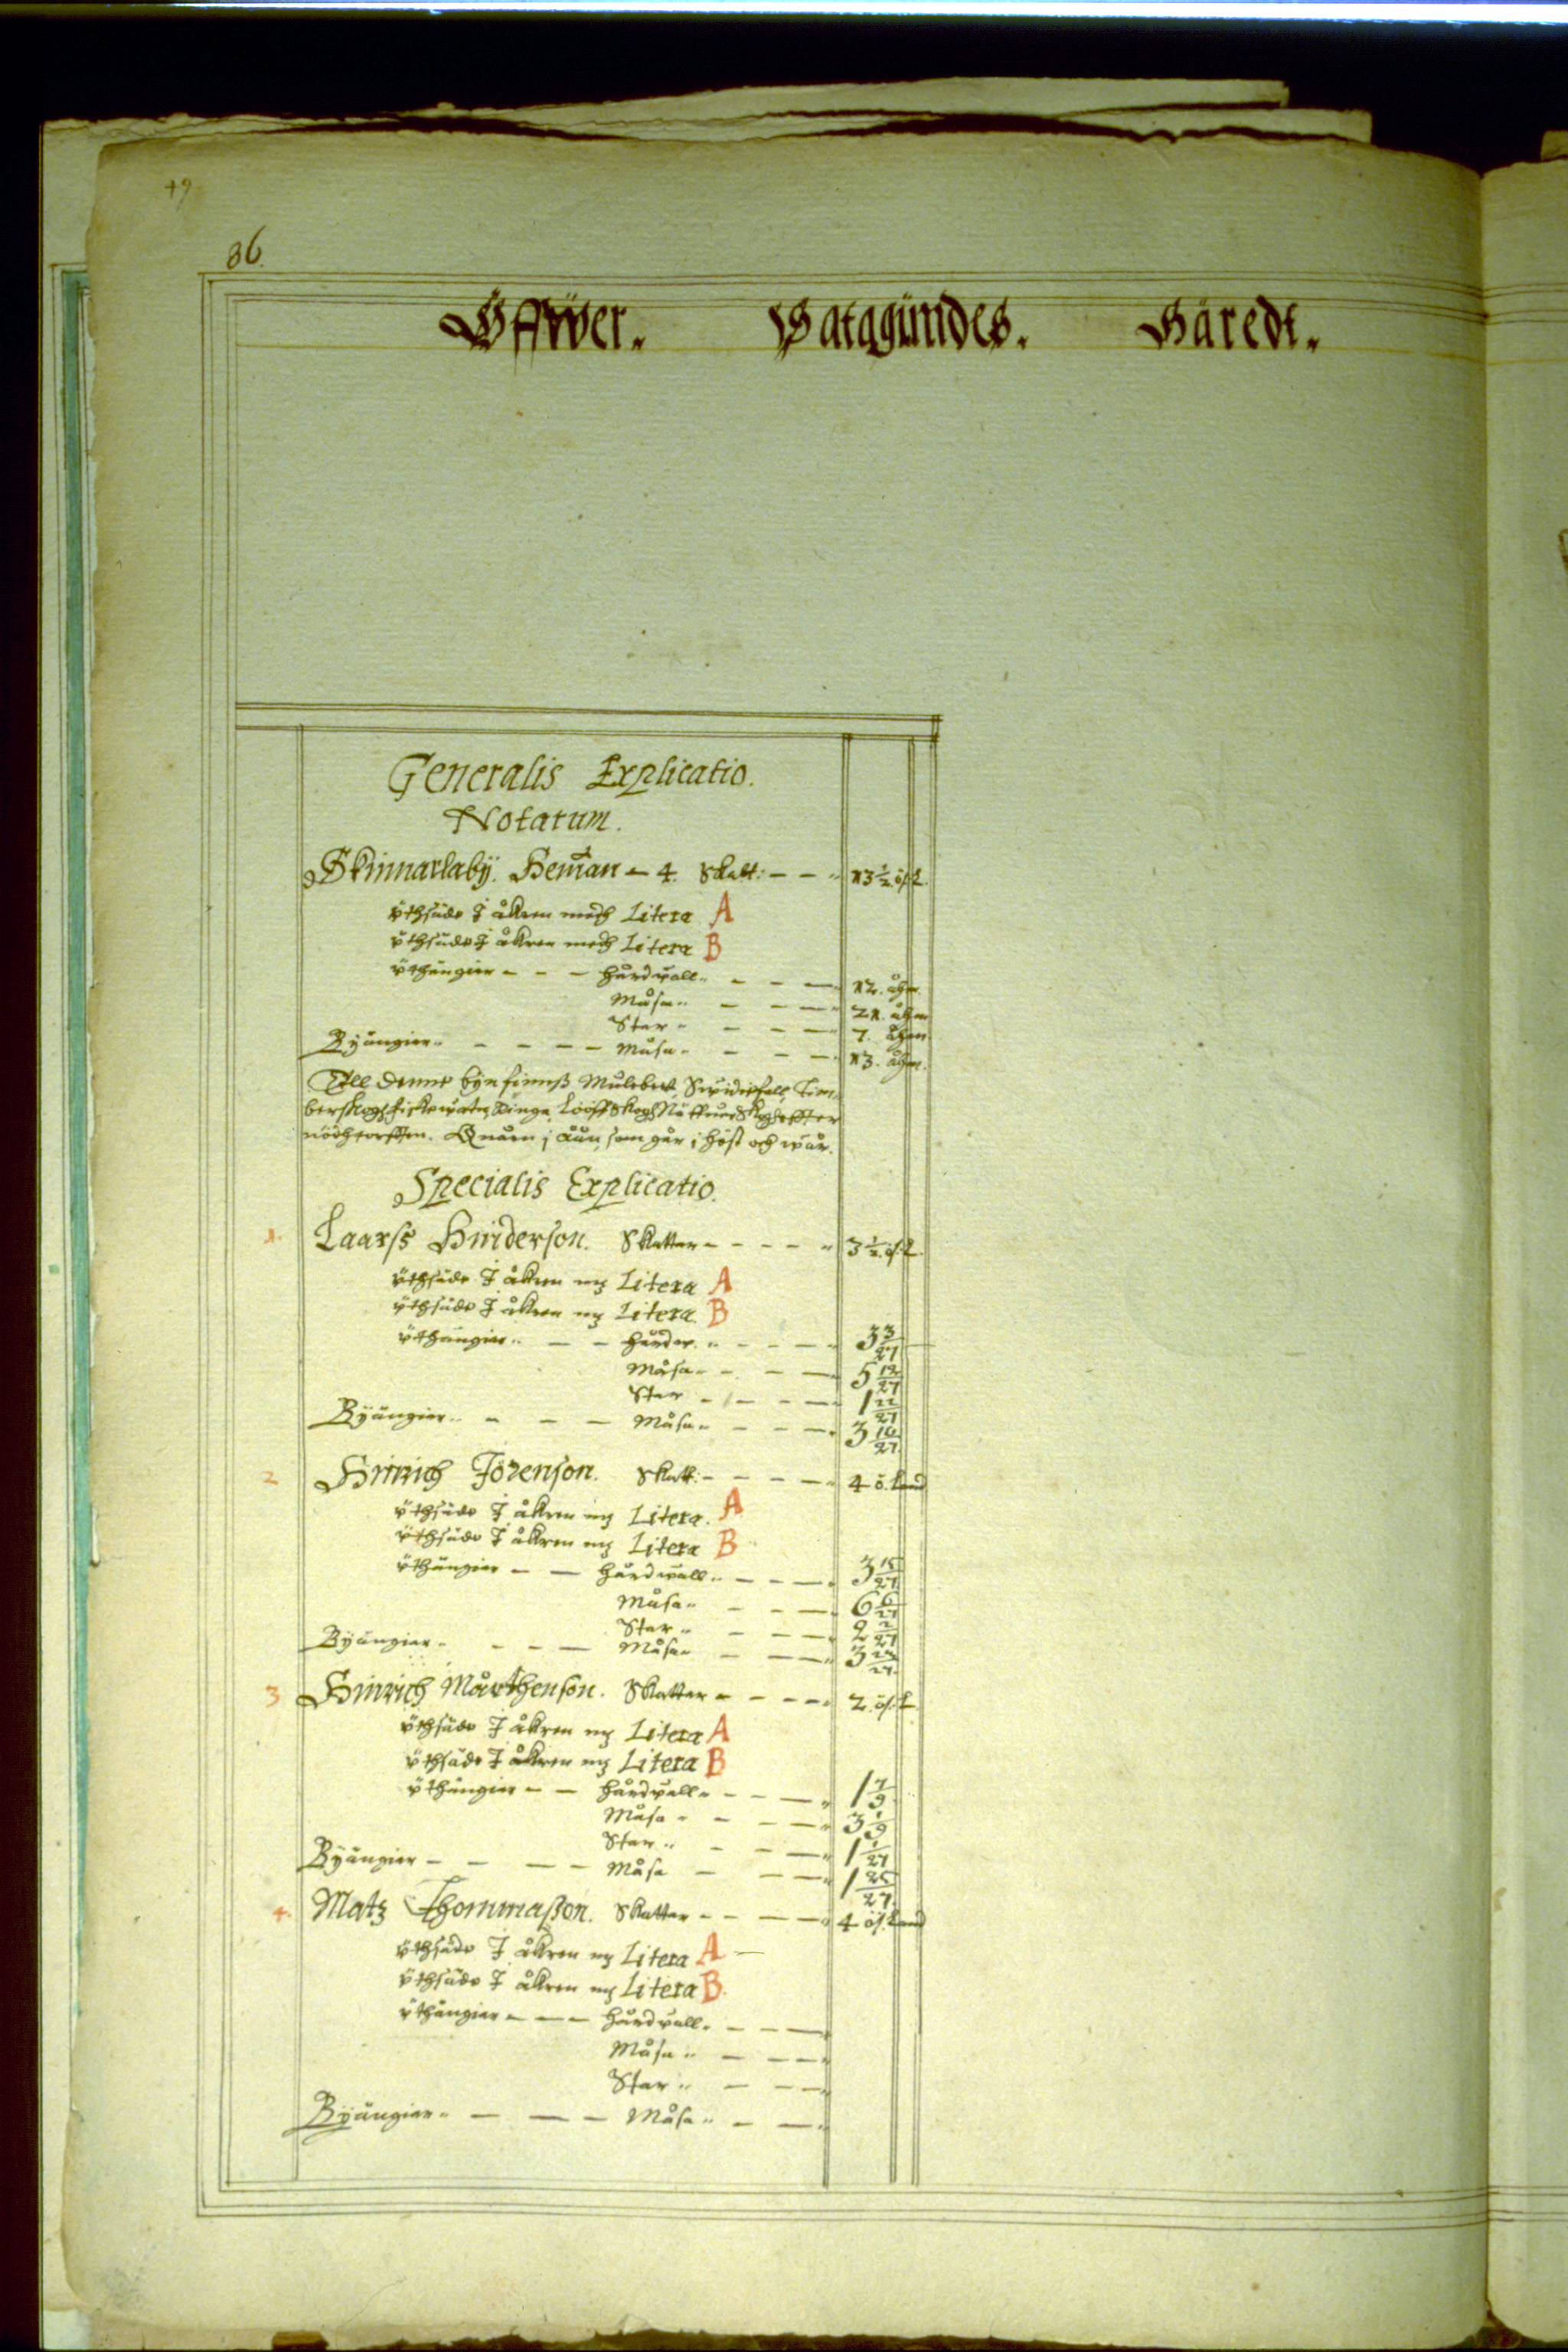 49
86.
Öffwer. Satagundes. Häredt.
Generalis Explicatio.
Notatum.
Skinnarlaby. Heman - 4. Skatt: - - 13 1/2 ösL.
Uthsäde I åkren medh Litera A
Uthsäde I åkren medh Litera B
Uthängier - - - hårdvall - - - 12. åhm
Måsa - - - 21. åhm
Star - - - 7. åhm
Byängier - - - - Måsa - - - 13. åhm.
Till denne byn finnss Mulebeet, Swidiefall, Tim-
berskogh fiskewatn, Löffskogh Näffwerskogh effter
nödhtorfften. Quarn i åun, som går i höst och wår.
Specialis Explicatio.
1. Laarss Hinderson. Skatter - - - - 3 1/2 ösL.
Uthsäde I åkren mz Litera A
Uthsäde I åkren mz Litera B
Uthängier - - hårdw. - - - 3 3/27
Måsa - - - 5 12/27
Star - - - 1 22/27
Byängier - - - Måsa - - - 3 10/27
2 Hinrich Jörenson. Skatt: - - - - 4 ö. Land
Uthsäde I åkren mz Litera. A
Uthsäde I åkren mz Litera B
Uthängier - - hårdwall - - - 3 15/27
Måsa - - - 6 6/27
Star - - - 2 2/27
Byängier - - - Måsa - - - 3 23/27
3 Hinrich Mårthenson. Skatter - - - - 2. ösL.
Uthsäde I åkren mz Litera A
Uthsäde I åkren mz Litera B
Uthängier - - hårdvall - - - 1 7/9
Måsa - - - 3 1/9
Star - - - 1 1/27
Byängier - - - - Måsa - - - 1 25/27
4. Matz Thommasson. Skatter - - - - 4 ös. Land
Uthsäde I åkren mz Litera A
Uthsäde I åkren mz Litera B.
Uthängier - - - hårdvall - - -
Måsa - - -
Star - - -
Byängier - - - Måsa - - -